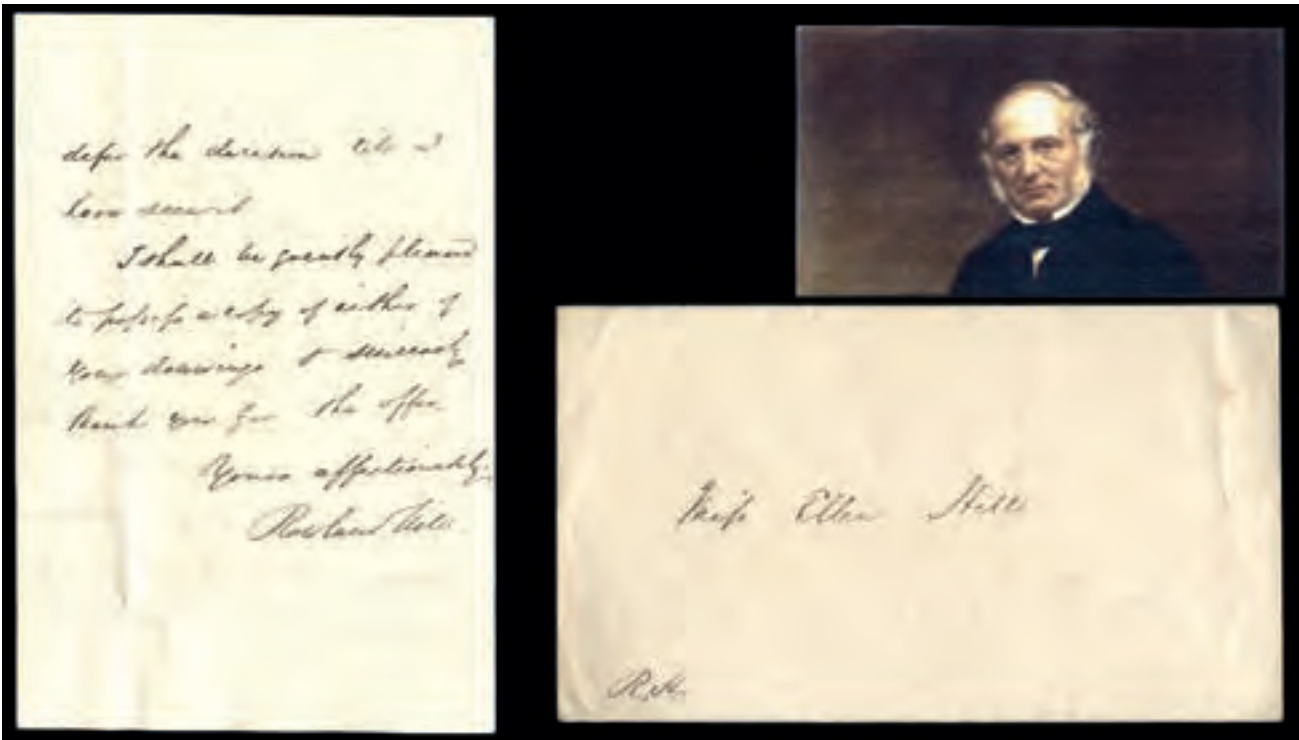 defer the decision till I
have seen it
I shall be greatly pleased
to possess a copy of either of
your drawings & sincerely
thank you for the offer.
Yours affectionately,
Rowland Hill.
Miss Ellen Hill
R.H.